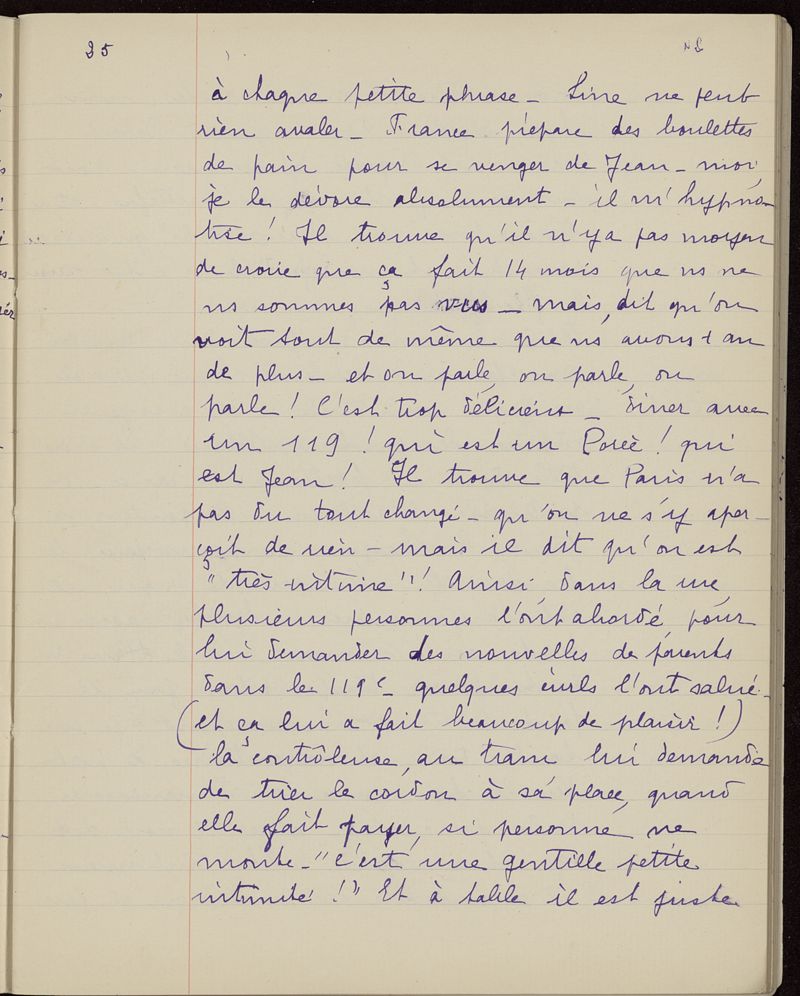 35
à chaque petite phrase - Line ne peut
rien avaler - France prépare des boulettes
de pain pour se venger de Jean - moi,
je le dévore absolument - il m'hypno-
tise ! Il trouve qu'il n'y a pas moyen
de croire que ça fait 14 mois que ns ne
ns sommes pas vus - mais, dit qu'on
voit tout de même que ns avons 1 an
de plus - et on parle, on parle, on
parle ! C'est trop délicieux - dîner avec
un 119 ! qui est un Poreè ! qui
est Jean ! Il trouve que Paris n'a
pas du tout changé - qu'on ne s'y aper-
çoit de rien - mais il dit qu'on est
"très intime" ! Ainsi, dans la rue,
plusieurs personnes l'ont abordé, pour
lui demander des nouvelles de parents
dans le 119e - quelques civils l'ont salué -
(et ça lui a fait beaucoup de plaisir !)
la contrôleuse, au tram lui demande
de tirer le cordon à sa place, quand
elle fait payer, si personne ne
monte - "c'est une gentille petite
intimité !" Et à table il est juste